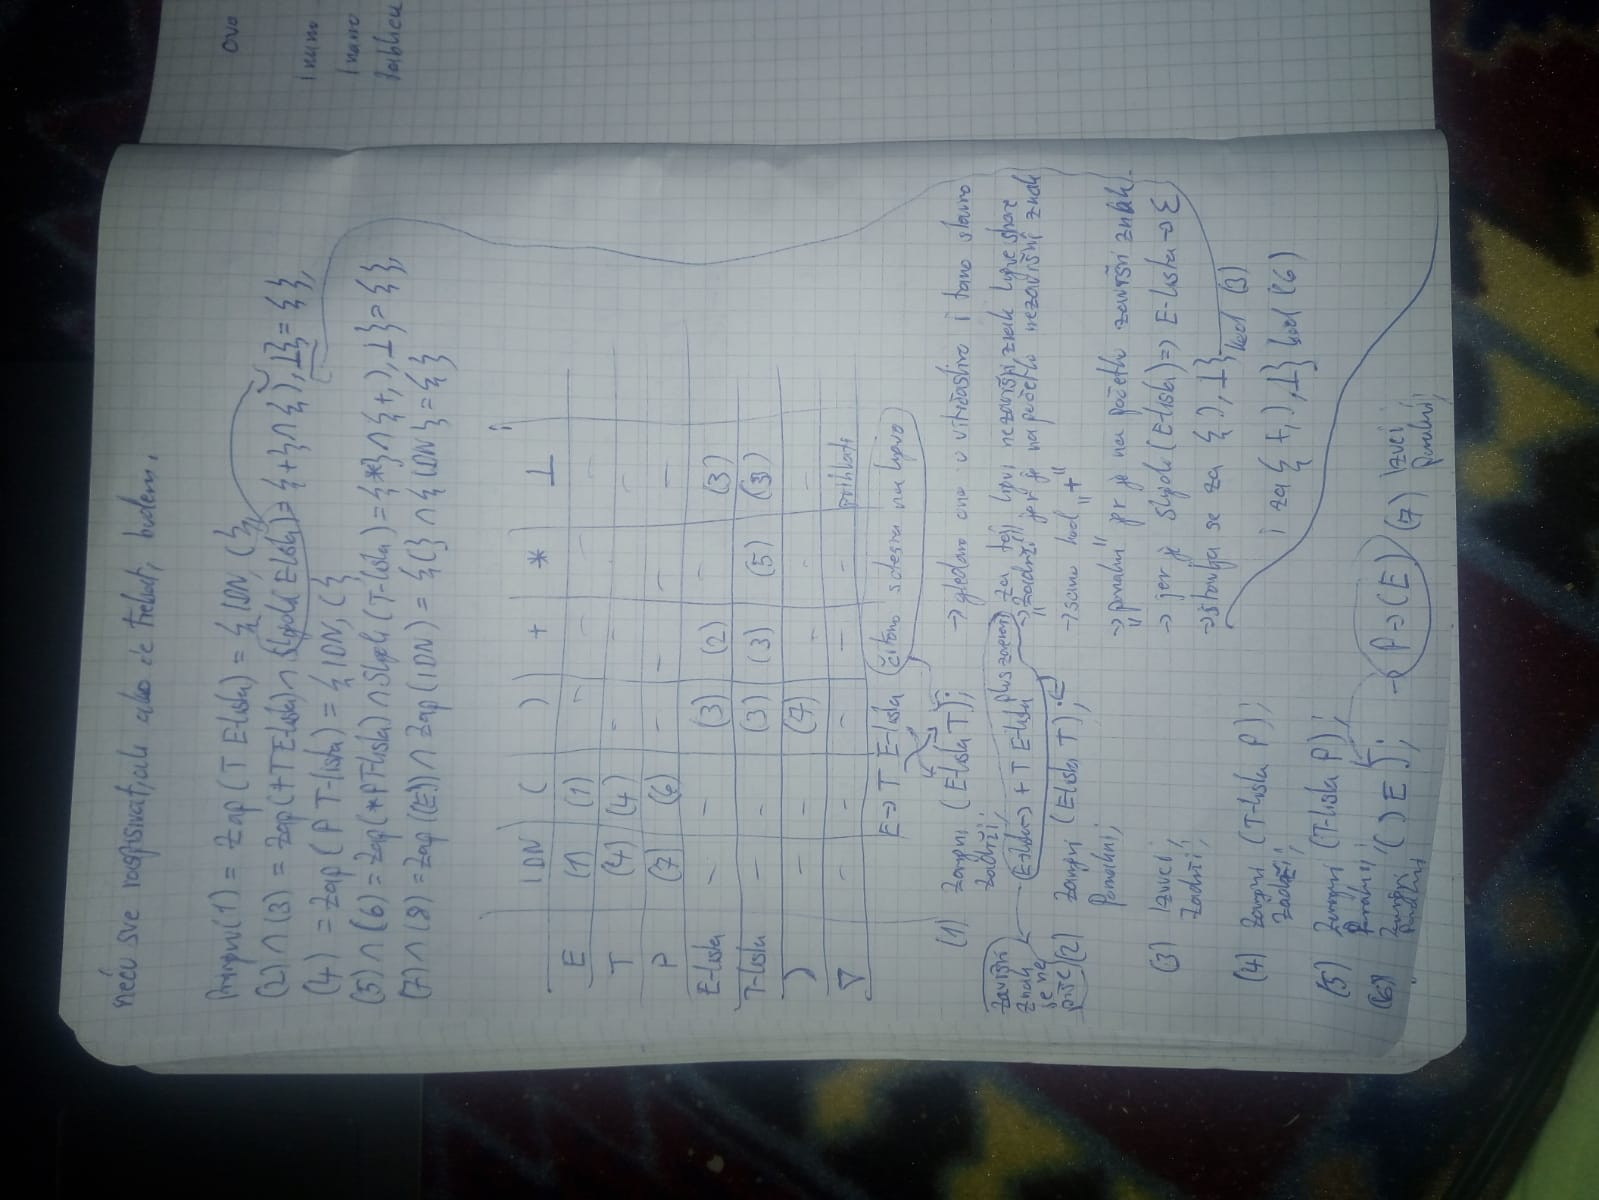 neću sve raspisivati, ali ako će trebat, budem.
Primjeni (1) = Zap (T E-lista) = { IDN, ( },
(2) ∩ (3) = Zap (+T E-lista) ∩ Slijedi (E-lista) = {+} ∩ { ), ⊥} = { },
(4) = Zap ( P T-lista) = { IDN, ( }
(5) ∩ (6) = Zap (*P T-lista) ∩ Slijedi (T-lista) = {*} ∩ { +, ), ⊥ } = { },
(7) ∩ (8) = Zap ((E)) ∩ Zap (IDN) = { ( } ∩ { IDN } = { }
IDN ( ) + * ⊥
E (1) (1) - - - -
T (4) (4) - - - -
P (7) (6) - - - -
E-lista - - (3) (2) - (3)
T-lista - - (3) (3) (5) (3)
) - - (7) - - -
▽ - - - - - prihvati
E → T E-lista (čitamo s desna na lijevo)
(1) Zamjeni (E-lista T);
Zadrži;
→ gledamo ono u vitičastim i tamo stavimo
za taj lijevi nezavršni znak lijeve strane
E-lista → + T E-lista
→ "zadrži" jer je na početku nezavršni znak
Završni znak se ne piše
(2) Zamjeni (E-lista T);
Pomakni;
→ samo kod "+"
→ "pomakni" jer je na početku završni znak.
(3) Izvuci;
Zadrži;
→ jer je Slijedi (E-lista) => E-lista → ε
→ stavlja se za { ), ⊥ } kod (3)
i za { +, ), ⊥ } kod (6)
(4) Zamjeni (T-lista P);
Zadrži;
(5) Zamjeni (T-lista P);
Pomakni;
(6) Zamjeni ( ) E );
Pomakni;
→ P → (E)
(7) Izvuci
Pomakni;
ovo
i nam
i nama
tablicu